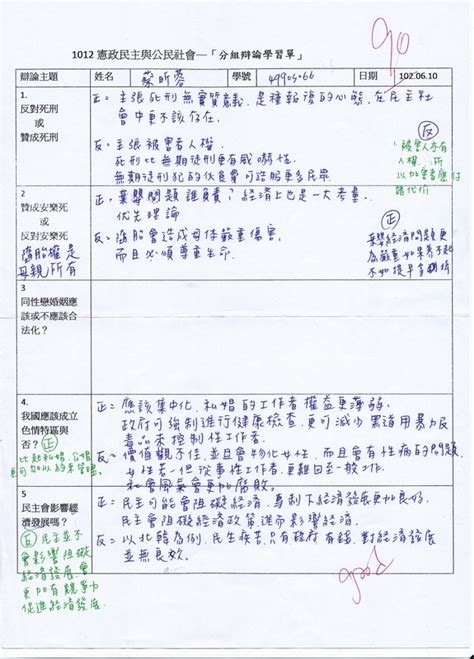 90
1012 憲政民主與公民社會—「分組辯論學習單」
辯論主題 姓名 蔡昕蓉 學號 日期 102.06.10
1.
反對死刑
或
贊成死刑
正=主張死刑無實質意義，是種報復的心態，在民主社
會中更不該存在。
反=主張被害者人權。
死刑比無期徒刑更有威嚇性。
無期徒刑犯的伙食費可給服更多民眾
反
被害人亦有
人權，所
以加害者應付
諸代價
2
贊成安樂死
或
反對安樂死
墮胎權是
母親所有
正=棄嬰問題誰負責？經濟上也是一大考量。
優先理論
反=墮胎會造成母体嚴重傷害。
而且必須尊重生命。
正
棄嬰經濟問題更
為嚴重如果養不起
不如提早
3
同性戀婚姻應
該或不應該合
法化？
4.
我國應該成立
色情特區與
否？ 正
比起私娼，公娼
更可加以約束管理。
正=應該集中化，私娼的工作者權益更薄弱。
政府可強制進行健康檢查，更可減少黑道用暴力及
毒品來控制性工作者。
反=價值觀不佳，並且會物化女性，而且會有性病的問題
女性若一但從事性工作者，更難回至一般工作
社會風氣會更加腐敗。
5
民主會影響經
濟發展嗎？
反 民主並不
會影響阻礙
經濟發展，會
更加有競爭力
促進經濟發展。
正=民主可能會阻礙經濟，專制下經濟發展更加良好。
民主會阻礙經濟政策進而影響經濟。
反=以北韓為例，民生疾苦，只有政府有錢，對經濟發展
並無良效。
good